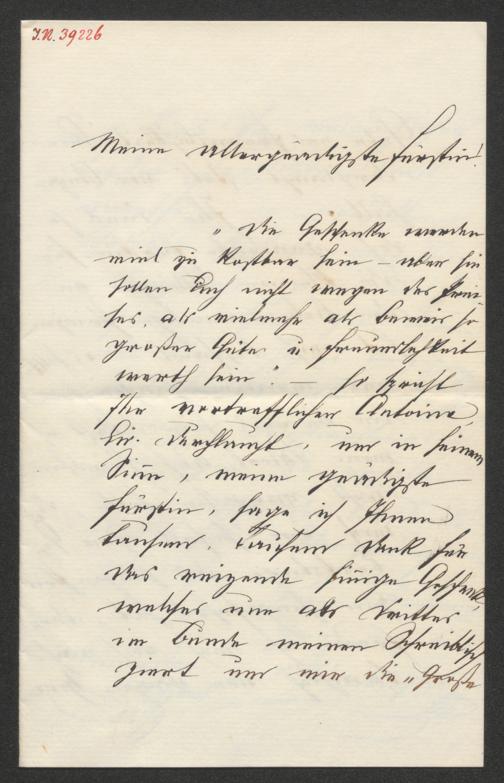 I.N. 39226
Meine allergnädigste Fürstin!
„ Die Geschenke werden
viel zu kostbar sein – aber sie
sollen Euch nicht wegen des Prei-
ses, als vielmehr als Beweis so
großer Güte u. Freundlichkeit
werth sein". — So spricht
Ihr vortrefflicher Antoine,
Durchlaucht, und in seinem
Sinne, meine gnädigste
Fürstin, sage ich Ihnen
tausend, tausend Dank für
das reizende sinnige Geschenk,
welches nun als Drittes
im Bunde meinen Schreibtisch
ziert und mir die „ Große